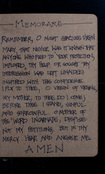 Memorare
Remember, O most gracious Virgin
Mary, that never was it known that
anyone who fled to your protection,
implored your help or sought your
intercession was left unaided
Inspired with this confidence,
I fly to thee, O Virgin of virgins,
my mother; to thee do I come,
before thee I stand, sinful
and sorrowful. O Mother of
the Word Incarnate, despise
not my petitions, but in thy
mercy hear and answer me.
AMEN